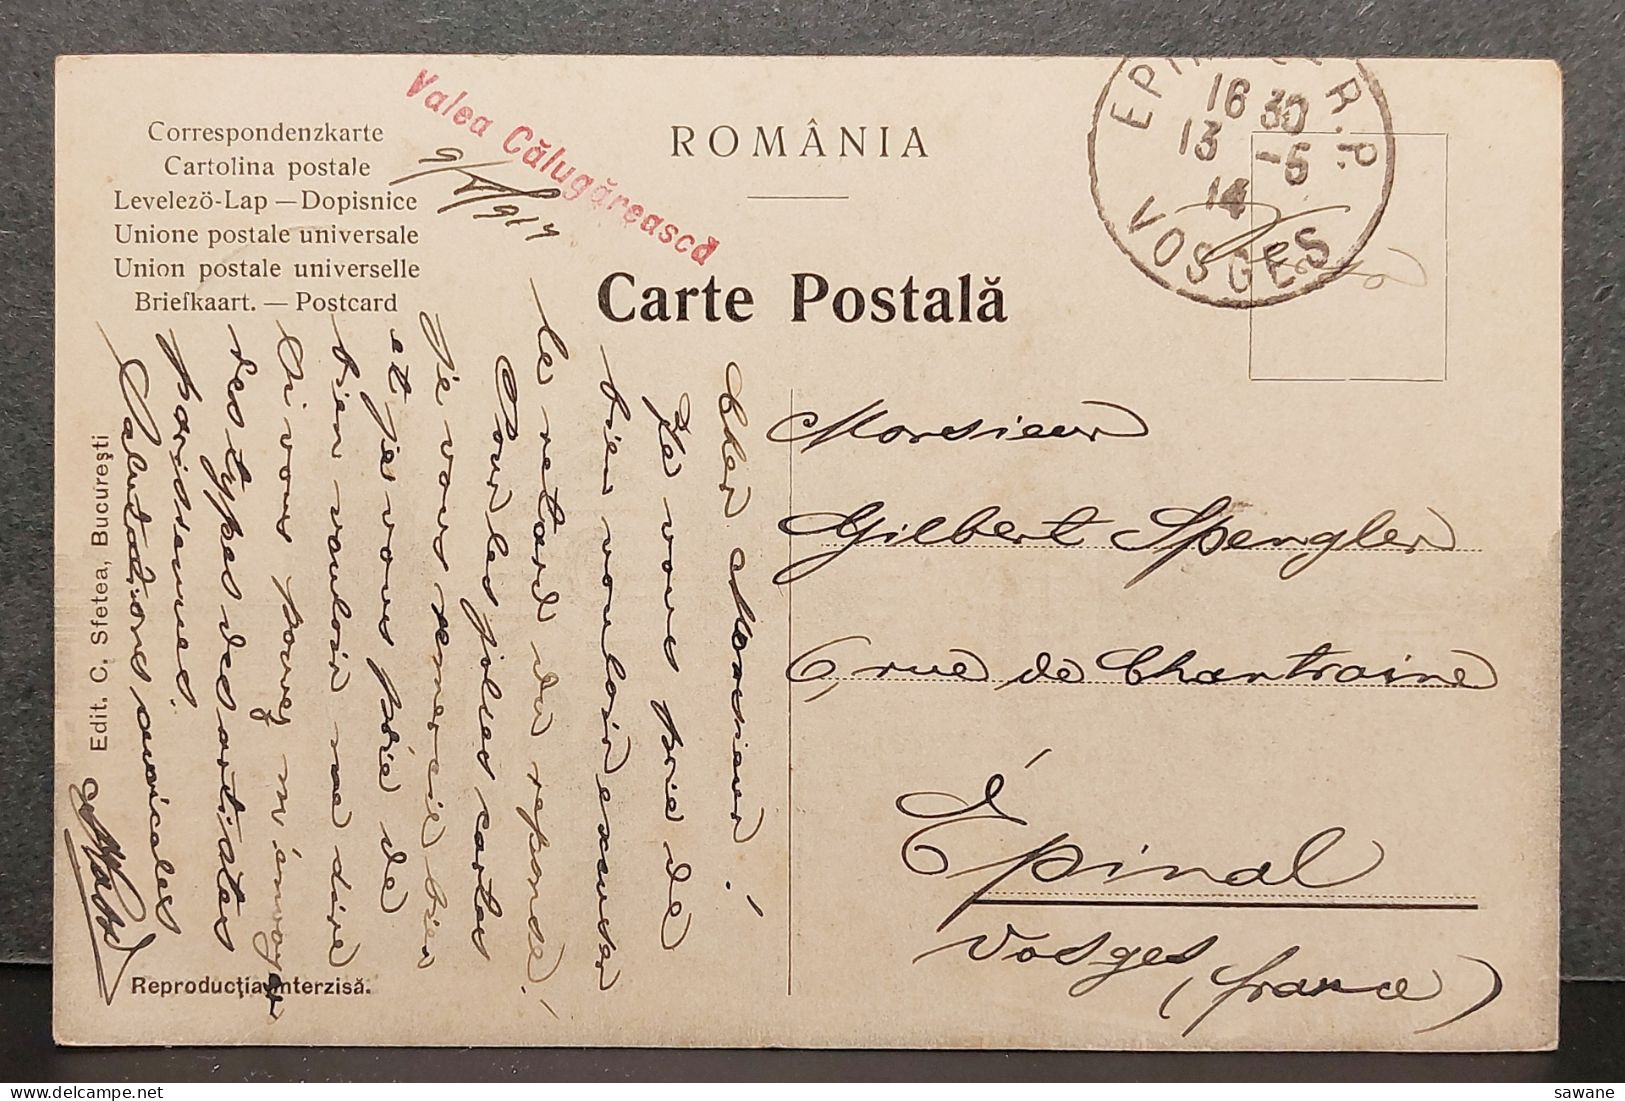 Correspondenzkarte
Cartolina postale
Levelezö-Lap — Dopisnice
Unione postale universale
Union postale universelle
Briefkaart. — Postcard
Valea Călugărească
9/V/914
ROMÂNIA
Carte Postală
R.P.
16 30
13 -5
14
VOSGES
Cher Monsieur!
Je vous prie de
bien vouloir excuser
le retard du reponse!
Pour les jolies cartes
je vous remercie bien
et je vous prie de
bien vouloir me dire
si vous pouvez m'envoyer
des types des artistes
parisiennes.
Salutations amicales
Monsieur
Gilbert Spengler
6, rue de Chantraine
Épinal
Vosges (france)
Edit. C. Sfetea, Bucureşti
Reproducţia interzisă.
sawane